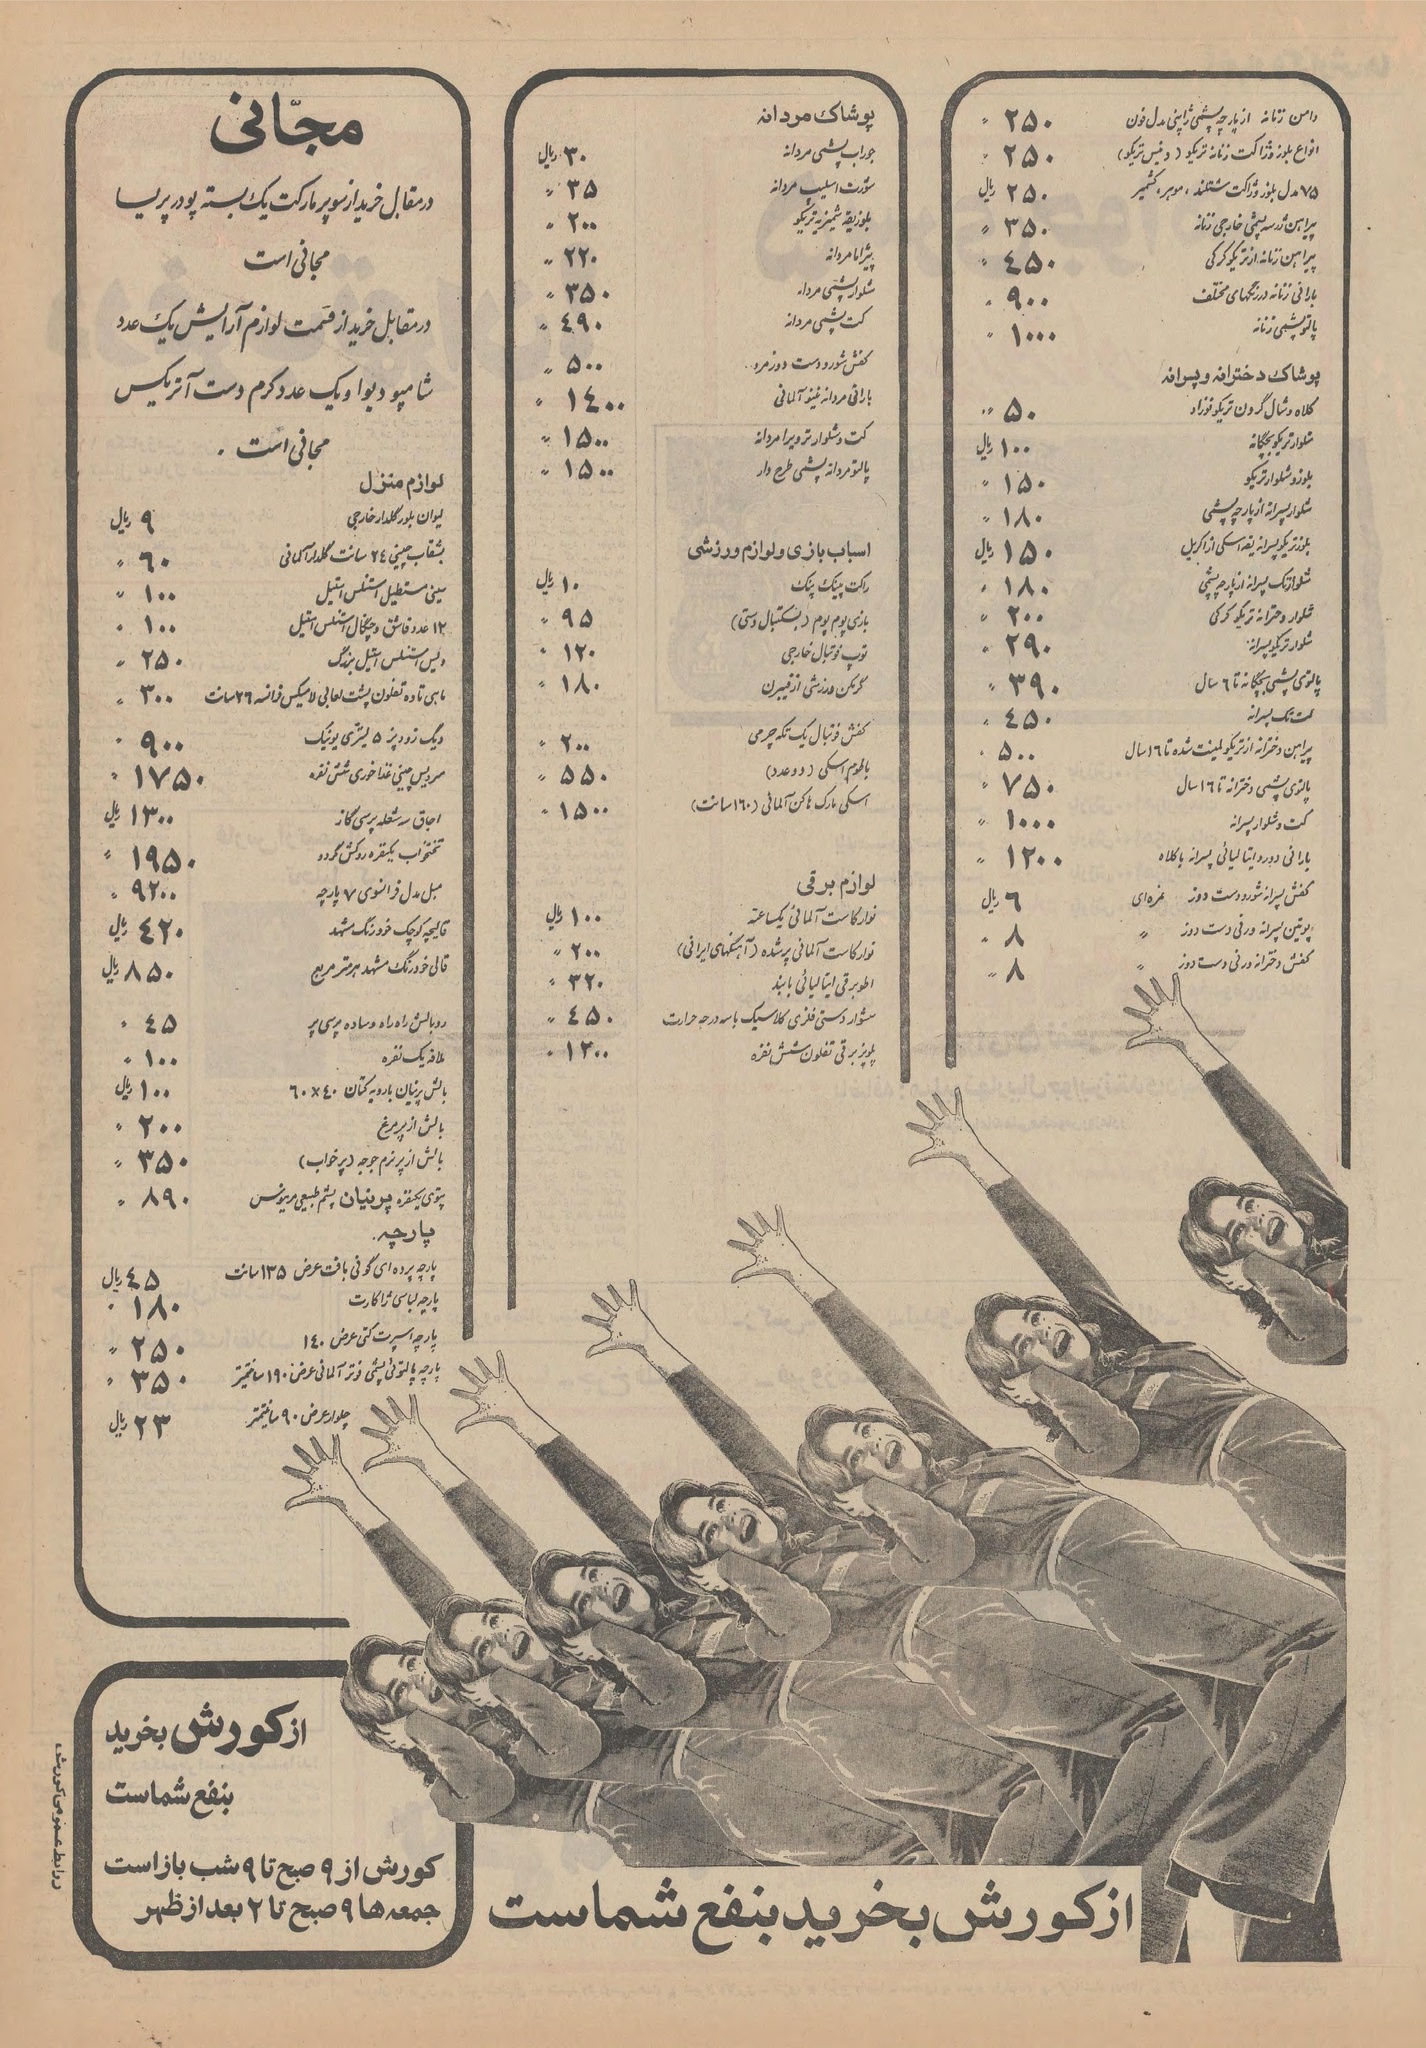 دامن زنانه از پارچه پشمی ژاپنی مدل فون ۲۵۰ »
انواع بلوز و ژاکت زنانه تریکو (ونیس تریکو) ۲۵۰ »
۷۵ مدل بلوز و ژاکت شتلند، موهر، کشمیر ۲۵۰ ریال
پیراهن ژرسه پشمی خارجی زنانه ۳۵۰ »
پیراهن زنانه از تریکو کرکی ۴۵۰ »
بارانی زنانه در رنگهای مختلف ۹۰۰ »
پالتو پشمی زنانه ۱۰۰۰ »
پوشاک دخترانه و پسرانه
کلاه و شال گردن تریکو نوزاد ۵۰ »
شلوار تریکو بچگانه ۱۰۰ ریال
بلوز و شلوار تریکو ۱۵۰ »
شلوار پسرانه از پارچه پشمی ۱۸۰ »
بلوز تریکو پسرانه یقه اسکی از اکریل ۱۵۰ ریال
شلوار تک پسرانه از پارچه پشمی ۱۸۰ »
شلوار دخترانه تریکو کرکی ۲۰۰ »
شلوار تریکو پسرانه ۲۹۰ »
پالتوی پشمی بچگانه تا ۶ سال ۳۹۰ »
کت تک پسرانه ۴۵۰ »
پیراهن دخترانه از تریکو لمینت شده تا ۱۶ سال ۵۰۰ »
پالتوی پشمی دخترانه تا ۱۶ سال ۷۵۰ »
کت و شلوار پسرانه ۱۰۰۰ »
بارانی دورو ایتالیائی پسرانه با کلاه ۱۲۰۰ »
کفش پسرانه شورو دست دوز نمره‌ای ۶ ریال
پوتین پسرانه ورنی دست دوز » ۸ »
کفش دخترانه ورنی دست دوز » ۸ »
پوشاک مردانه
جوراب پشمی مردانه ۳۰ ریال
شورت اسلیپ مردانه ۳۵ »
بلوز یقه شمیزیه تریکو ۲۰۰ »
پیژاما مردانه ۲۲۰ »
شلوار پشمی مردانه ۳۵۰ »
کت پشمی مردانه ۴۹۰ »
کفش شورو دست دوز مردانه ۵۰۰ »
بارانی مردانه نینو آلمانی ۱۴۰۰ »
کت و شلوار ترویرا مردانه ۱۵۰۰ »
پالتو مردانه پشمی طرح دار ۱۵۰۰ »
اسباب بازی و لوازم ورزشی
راکت پینگ پنگ ۱۰ ریال
بازی پوم پوم (بسکتبال دستی) ۹۵ »
توپ فوتبال خارجی ۱۲۰ »
گرمکن ورزشی از فیبرن ۱۸۰ »
کفش فوتبال یک تکه چرمی ۲۰۰ »
باطوم اسکی (دو عدد) ۵۵۰ »
اسکی مارک هاکن آلمانی (۱۶۰ سانت) ۱۵۰۰ »
لوازم برقی
نوار کاست آلمانی یکساعته ۱۰۰ ریال
نوار کاست آلمانی پر شده (آهنگهای ایرانی) ۲۰۰ »
اطو برقی ایتالیائی با بند ۳۲۰ »
سشوار دستی فلزی کلاسیک با سه درجه حرارت ۴۵۰ »
پلوپز برقی تفلون شش نفره ۱۲۰۰ »
مجّانی
در مقابل خرید از سوپر مارکت یک بسته پودر پریسا
مجانی است
در مقابل خرید از قسمت لوازم آرایش یک عدد
شامپو دیوا و یک عدد کرم دست آتریکس
مجانی است .
لوازم منزل
لیوان بلور گلدار خارجی ۹ ریال
بشقاب چینی ۲۴ سانت گلدار آلمانی ۶۰ »
سینی مستطیل استنلس استیل ۱۰۰ »
۱۲ عدد قاشق و چنگال استنلس استیل ۱۰۰ »
دیس استنلس استیل بزرگ ۲۵۰ »
ماهی تابه تفلون پشت لعابی لامیکس فرانسه ۲۶ سانت ۳۰۰ »
دیگ زودپز ۵ لیتری یونیک ۹۰۰ »
سرویس چینی غذاخوری شش نفره ۱۷۵۰ »
اجاق سه شعله پرسی گاز ۱۳۰۰ ریال
تختخواب یکنفره روکش گردو ۱۹۵۰ »
مبل مدل فرانسوی ۷ پارچه ۹۲۰۰ »
قالیچه کوچک خودرنگ مشهد ۴۲۰ ریال
قالی خودرنگ مشهد هر متر مربع ۸۵۰ ریال
روبالش راه راه و ساده پرسی پر ۴۵ »
ملافه یک نفره ۱۰۰ »
بالش پرنیان با رویه کتان ۴۰×۶۰ ۱۰۰ ریال
بالش از پر مرغ ۲۰۰ »
بالش از پر نرم جوجه (پرخواب) ۳۵۰ »
پتوی یکنفره پرنیان پشم طبیعی مرینوس ۸۹۰ »
پارچه.
پارچه پرده‌ای گونی بافت عرض ۱۳۵ سانت ۴۵ ریال
پارچه لباسی ژاکارت ۱۸۰ »
پارچه اسپرت کتی عرض ۱۴۰ ۲۵۰ »
پارچه پالتوئی پشمی فوتر آلمانی عرض ۱۹۰ سانتیمتر ۳۵۰ »
چلوار عرض ۹۰ سانتیمتر ۲۳ ریال
از کورش بخرید
بنفع شماست
کورش از ۹ صبح تا ۹ شب باز است
جمعه ها ۹ صبح تا ۲ بعد از ظهر
روابط عمومی کورش
از کورش بخرید بنفع شماست